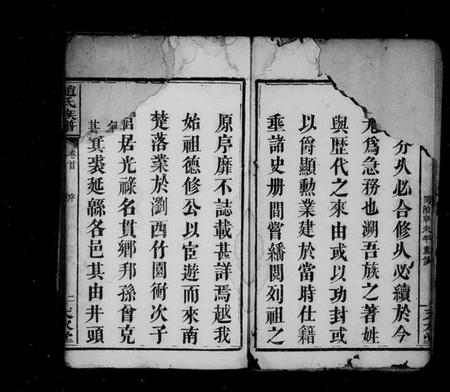 同治辛未年重修
分乆必合修乆必續於今
尤為急務也溯吾族之著姓
與歷代之來由或以功封或
以爵顯勲業建於當時仕籍
垂諸史册間嘗繙閱列祖之
原序靡不誌載甚詳焉越我
始祖德修公以宦遊而來南
楚落業於瀏西竹園衝次子
居光祿名貫鄉邦孫曾克
其箕裘延緜各邑其由井頭
趙氏族譜
卷首
序